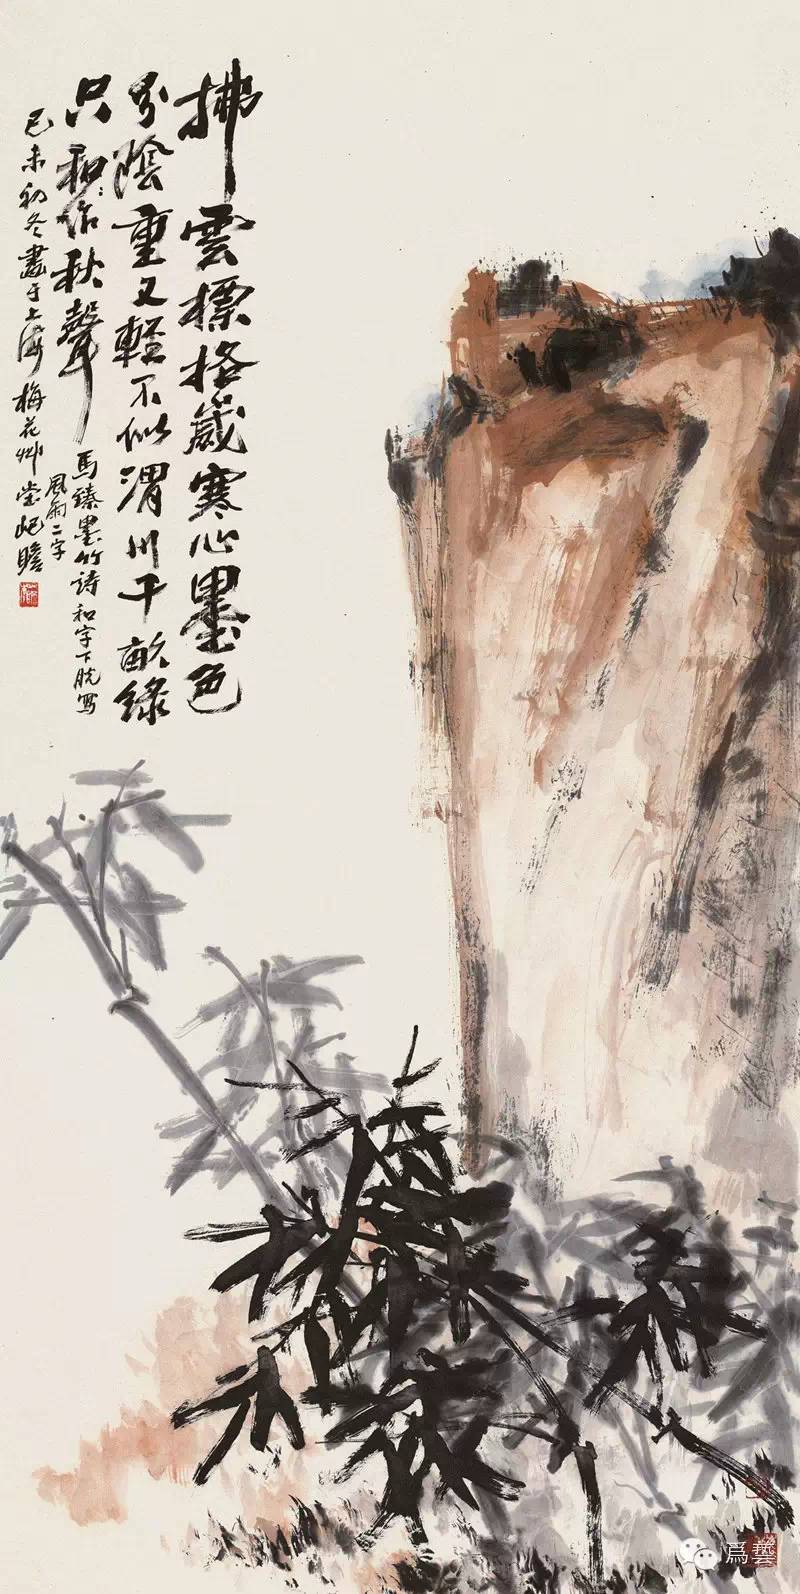 拂雲標格歲寒心墨色
分陰重又輕不似渭川千畝綠
只和作秋聲
馬臻墨竹詩和字下脱寫
風雨二字
己未初冬畫于上海梅花艸堂屺瞻
爲藝